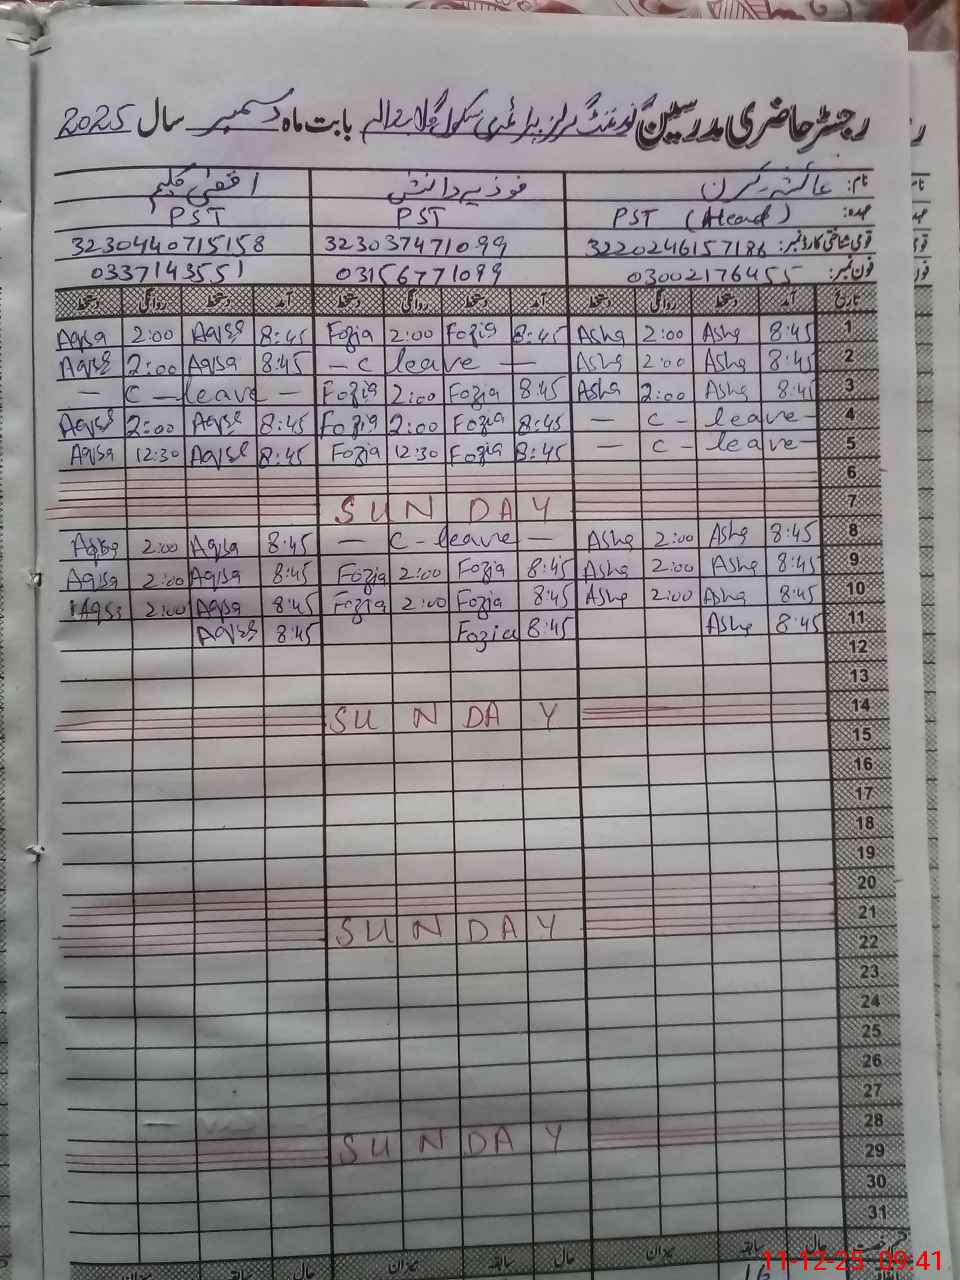 رجسٹر حاضری مدرسین گورنمنٹ گرلز پرائمری سکول بابت ماہ دسمبر سال 2025
نام: عائشہ کرن فوذیہ دانش اقصیٰ کلیم
عہدہ: PST (Head) PST PST
قومی شناختی کارڈ نمبر: 3220246157186 323037471099 3230440715158
فون نمبر: 03002176455 03156771099 0337143551
تاریخ آمد دستخط روانگی دستخط آمد دستخط روانگی دستخط آمد دستخط روانگی دستخط
Aqsa 2:00 Aqsa 8:45 Fozia 2:00 Fozia 8:45 Asha 2:00 Asha 8:45 1
Aqsa 2:00 Aqsa 8:45 — c leave — Asha 2:00 Asha 8:45 2
— C — leave — Fozia 2:00 Fozia 8:45 Asha 2:00 Asha 8:45 3
Aqsa 2:00 Aqsa 8:45 Fozia 2:00 Fozia 8:45 — c - leave - 4
Aqsa 12:30 Aqsa 8:45 Fozia 12:30 Fozia 8:45 — c - leave - 5
6
SUNDAY 7
Aqsa 2:00 Aqsa 8:45 — C - leave — Asha 2:00 Asha 8:45 8
Aqsa 2:00 Aqsa 8:45 Fozia 2:00 Fozia 8:45 Asha 2:00 Asha 8:45 9
Aqsa 2:00 Aqsa 8:45 Fozia 2:00 Fozia 8:45 Asha 2:00 Asha 8:45 10
Aqsa 8:45 Fozia 8:45 Asha 8:45 11
12
13
SUNDAY 14
15
16
17
18
19
20
21
SUNDAY
22
23
24
25
26
27
28
SUNDAY
29
30
31
حال سابقہ میزان حال سابقہ میزان حال سابقہ میزان
11-12-25 09:41